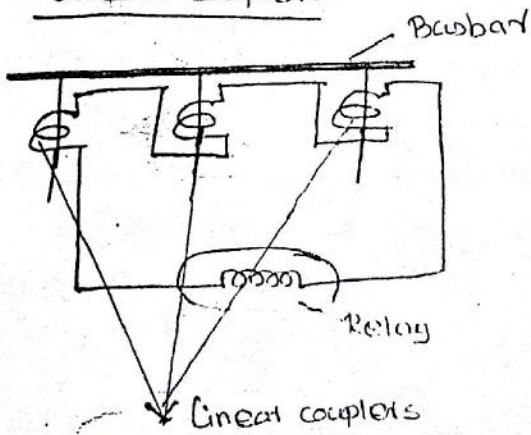 Busbar
Relay
Linear couplers